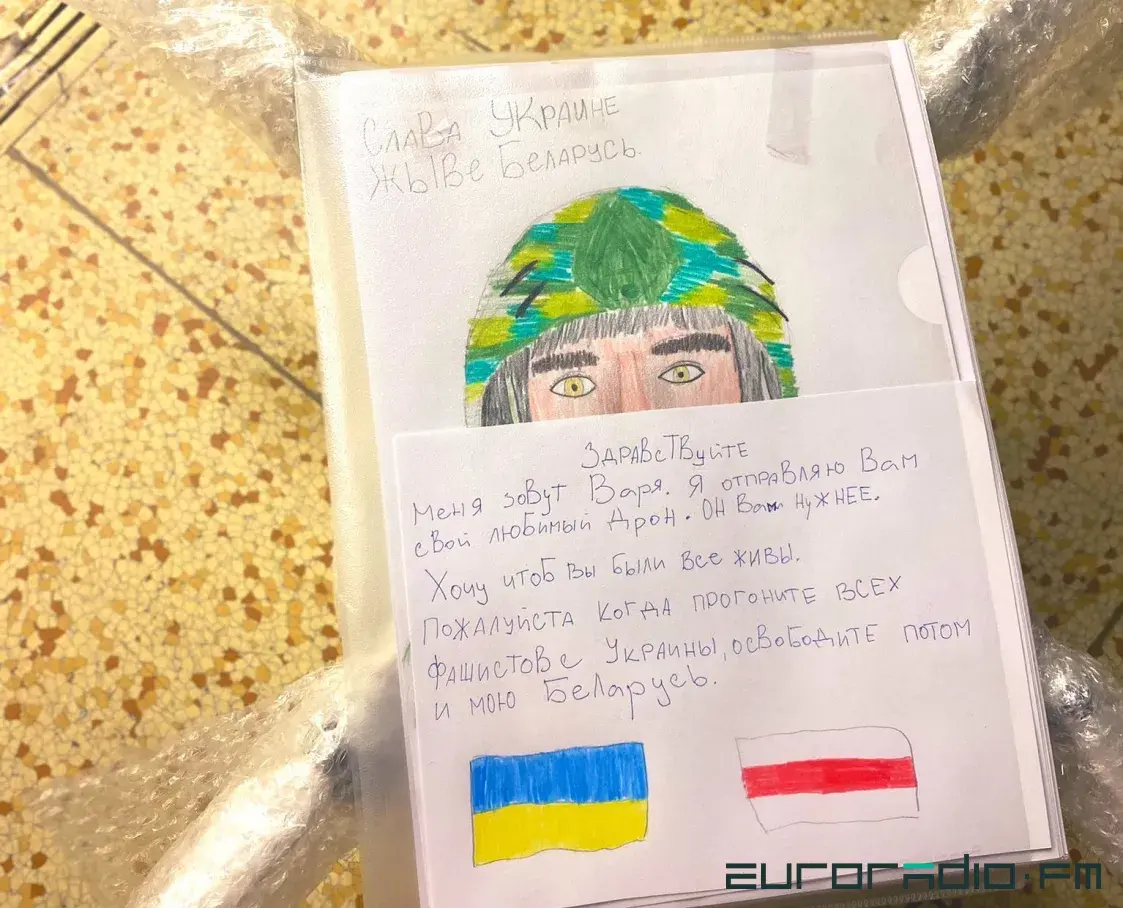 Слава Украине
Жыве Беларусь.
Здравствуйте
Меня зовут Варя. Я отправляю Вам
свой любимый дрон. Он Вам нужнее.
Хочу чтоб вы были все живы.
Пожалуйста когда прогоните всех
фашистов с Украины, освободите потом
и мою Беларусь.
euroradio.fm